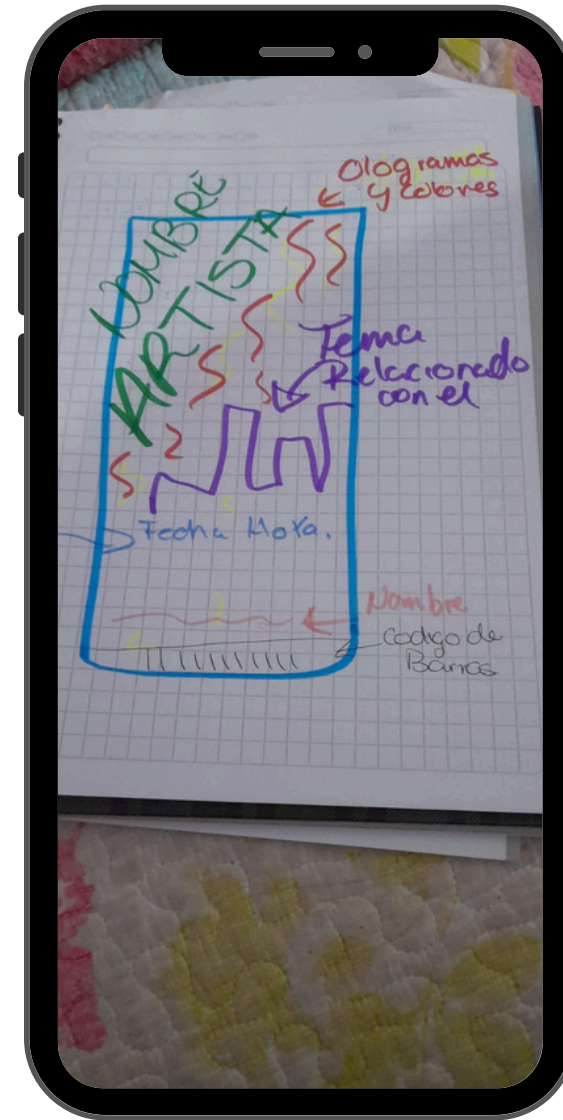 Ologramas
y colores
NOMBRE
ARTISTA
Tema
Relacionado
con el
Fecha Hora.
Nombre
Codigo de
Barras